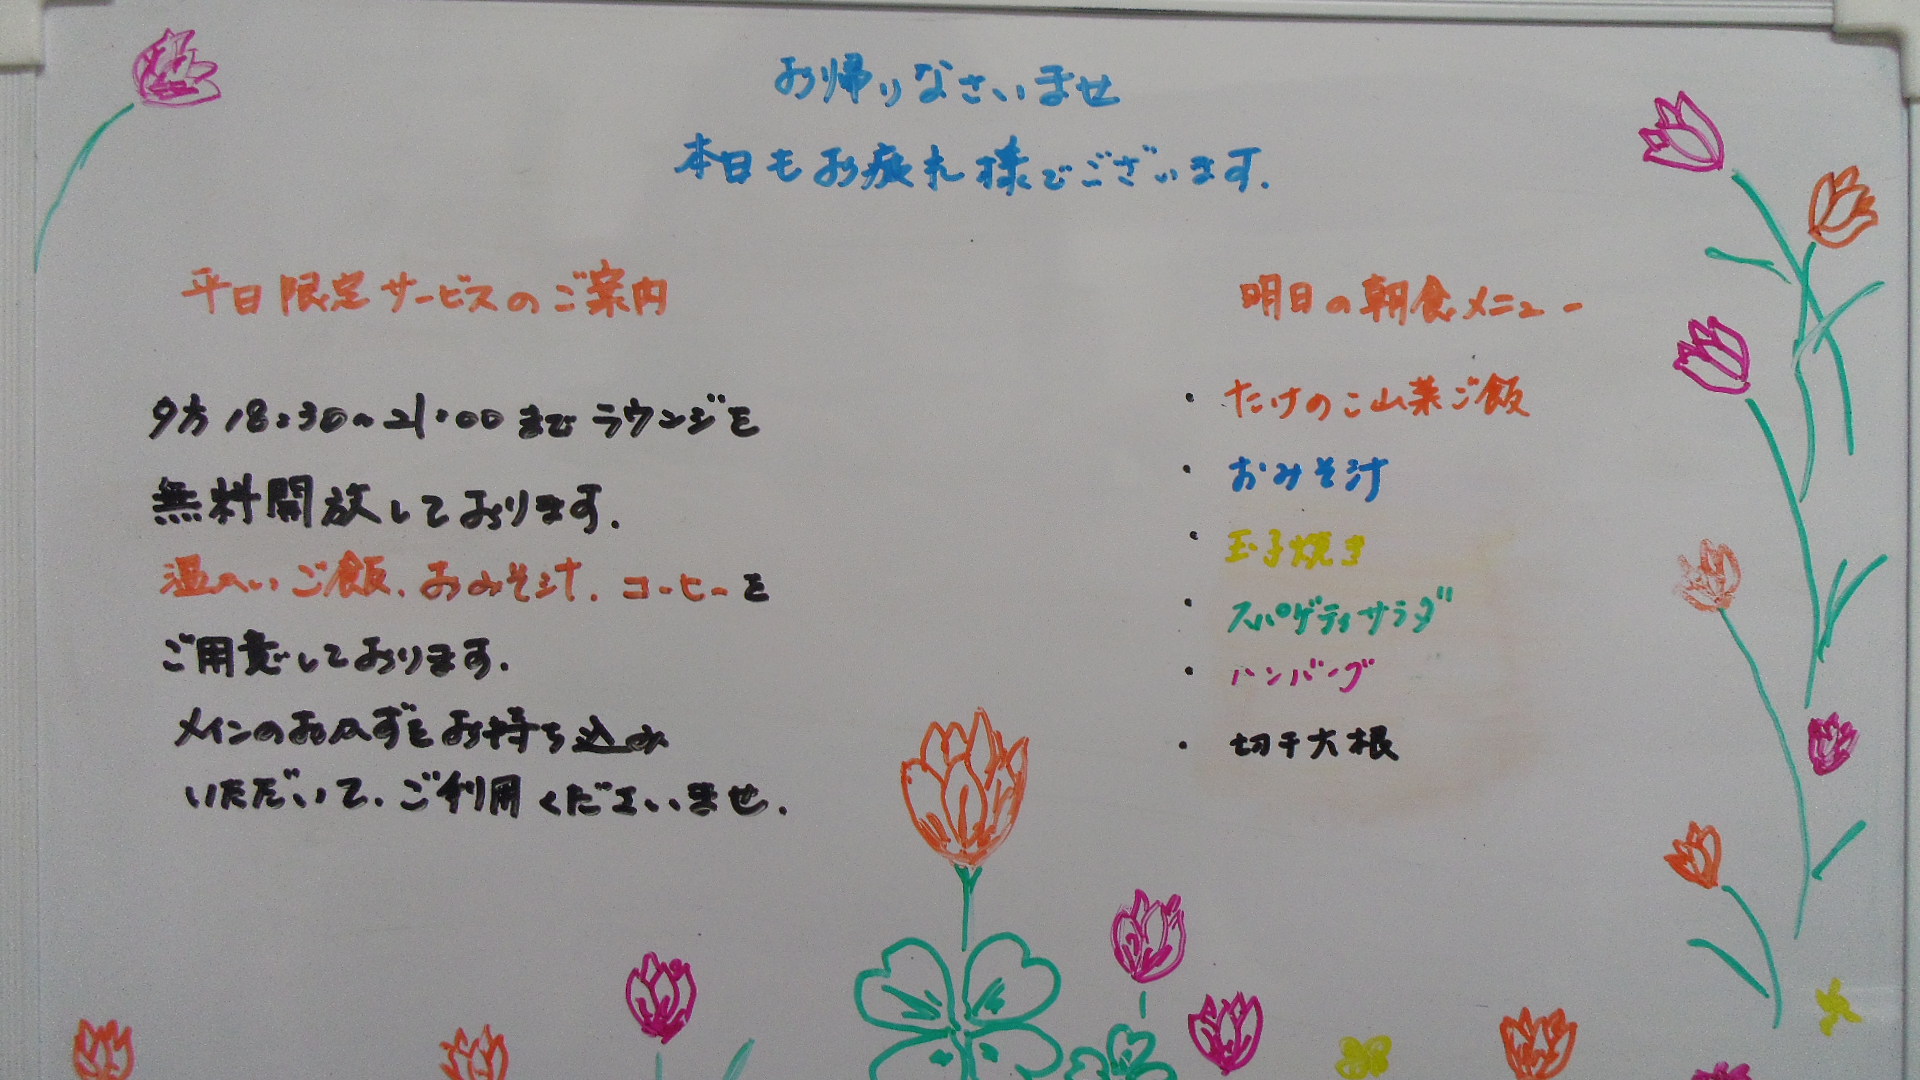 お帰りなさいませ
本日もお疲れ様でございます.
平日限定サービスのご案内
夕方18:30〜21:00までラウンジを
無料開放しております.
温かいご飯.おみそ汁.コーヒーを
ご用意しております.
メインのおかずをお持ち込み
いただいて.ご利用くださいませ.
明日の朝食メニュー
・たけのこ山菜ご飯
・おみそ汁
・玉子焼き
・スパゲティサラダ
・ハンバーグ
・切干大根